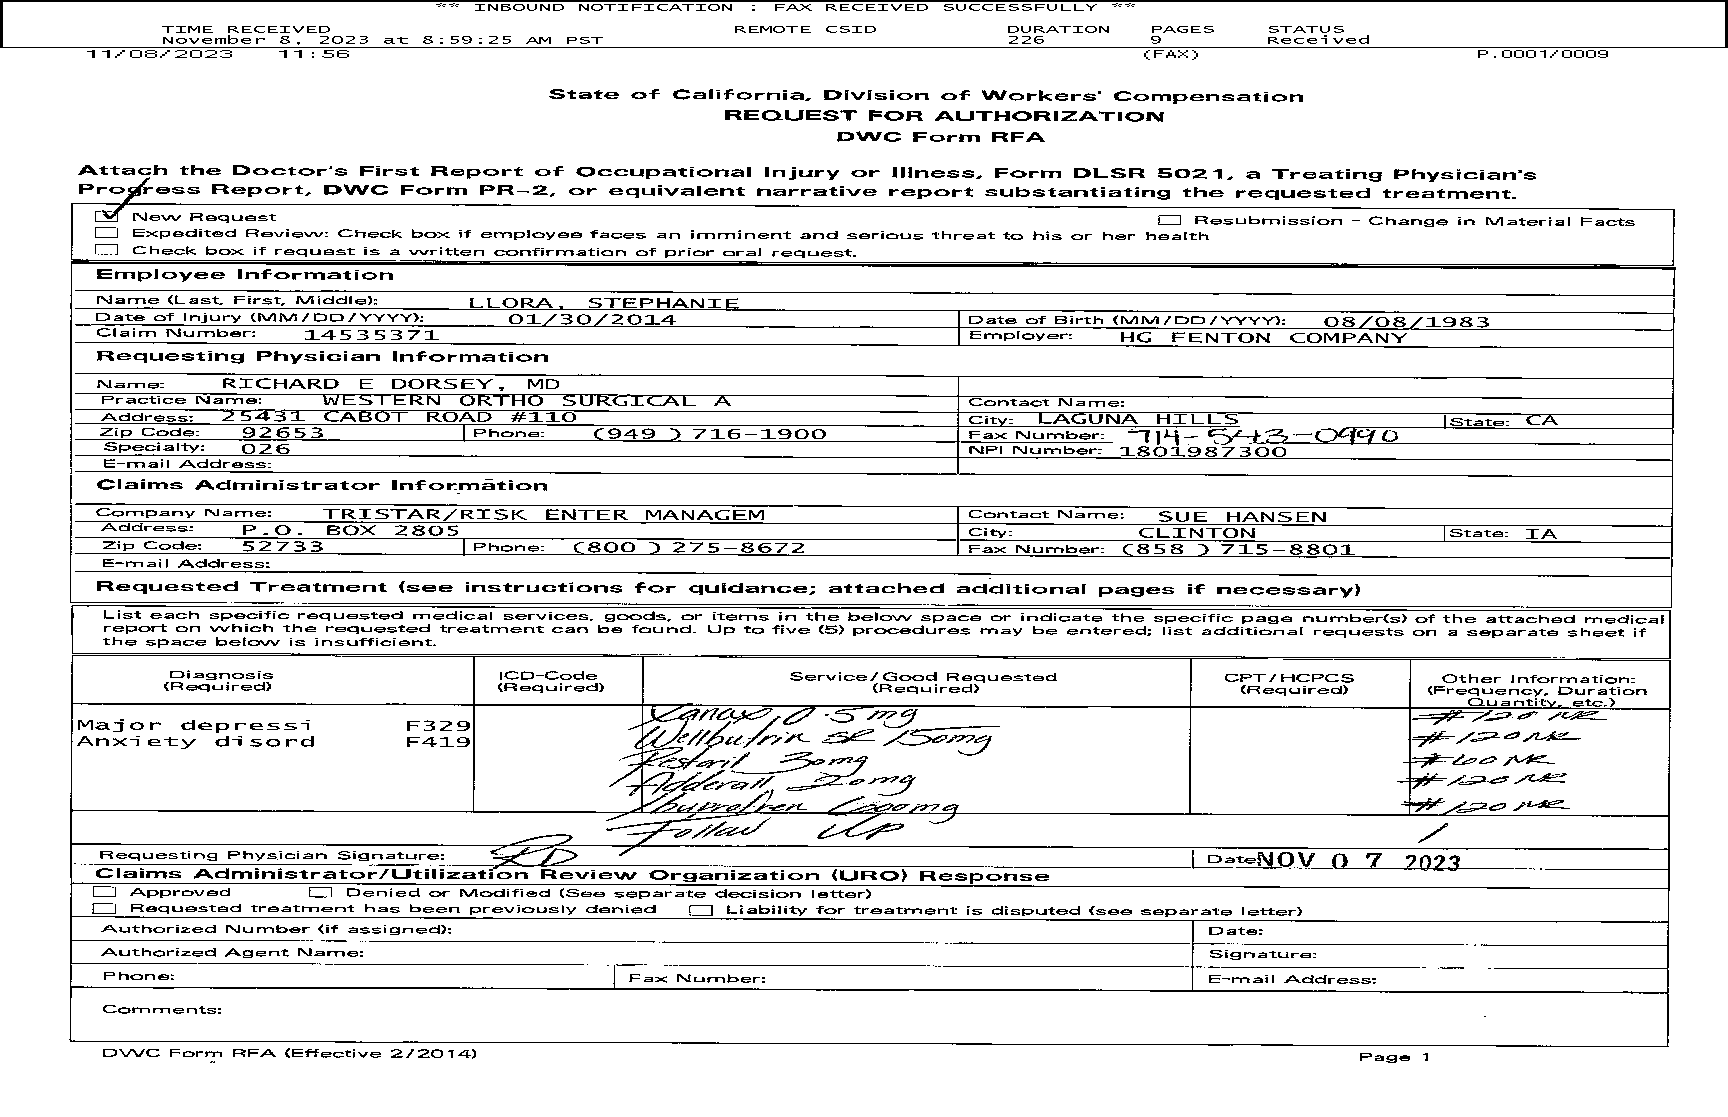 ** INBOUND NOTIFICATION : FAX RECEIVED SUCCESSFULLY **
TIME RECEIVED REMOTE CSID DURATION PAGES STATUS
November 8, 2023 at 8:59:25 AM PST 226 9 Received
11/08/2023 11:56 (FAX) P.0001/0009
State of California, Division of Workers' Compensation
REQUEST FOR AUTHORIZATION
DWC Form RFA
Attach the Doctor's First Report of Occupational Injury or Illness, Form DLSR 5021, a Treating Physician's
Progress Report, DWC Form PR-2, or equivalent narrative report substantiating the requested treatment.
New Request Resubmission - Change in Material Facts
Expedited Review: Check box if employee faces an imminent and serious threat to his or her health
Check box if request is a written confirmation of prior oral request.
Employee Information
Name (Last, First, Middle): LLORA, STEPHANIE
Date of Injury (MM/DD/YYYY): 01/30/2014 Date of Birth (MM/DD/YYYY): 08/08/1983
Claim Number: 14535371 Employer: HG FENTON COMPANY
Requesting Physician Information
Name: RICHARD E DORSEY, MD
Practice Name: WESTERN ORTHO SURGICAL A Contact Name:
Address: 25431 CABOT ROAD #110 City: LAGUNA HILLS State: CA
Zip Code: 92653 Phone: (949 ) 716-1900 Fax Number: 714-543-0990
Specialty: 026 NPI Number: 1801987300
E-mail Address:
Claims Administrator Information
Company Name: TRISTAR/RISK ENTER MANAGEM Contact Name: SUE HANSEN
Address: P.O. BOX 2805 City: CLINTON State: IA
Zip Code: 52733 Phone: (800 ) 275-8672 Fax Number: (858 ) 715-8801
E-mail Address:
Requested Treatment (see instructions for guidance; attached additional pages if necessary)
List each specific requested medical services, goods, or items in the below space or indicate the specific page number(s) of the attached medical
report on which the requested treatment can be found. Up to five (5) procedures may be entered; list additional requests on a separate sheet if
the space below is insufficient.
Diagnosis ICD-Code Service/Good Requested CPT/HCPCS Other Information:
(Required) (Required) (Required) (Required) (Frequency, Duration
Quantity, etc.)
Xanax, 0.5mg #120 NR
Major depressi F329 Wellbutrin SR 150mg #120 NR
Anxiety disord F419
Restoril 30mg #60 NR
Adderall 20mg #120 NR
Ibuprofren 600mg #120 NR
Follow Up 1
Requesting Physician Signature: RD Date NOV 07 2023
Claims Administrator/Utilization Review Organization (URO) Response
Approved Denied or Modified (See separate decision letter)
Requested treatment has been previously denied Liability for treatment is disputed (see separate letter)
Authorized Number (if assigned): Date:
Authorized Agent Name: Signature:
Phone: Fax Number: E-mail Address:
Comments:
DWC Form RFA (Effective 2/2014) Page 1